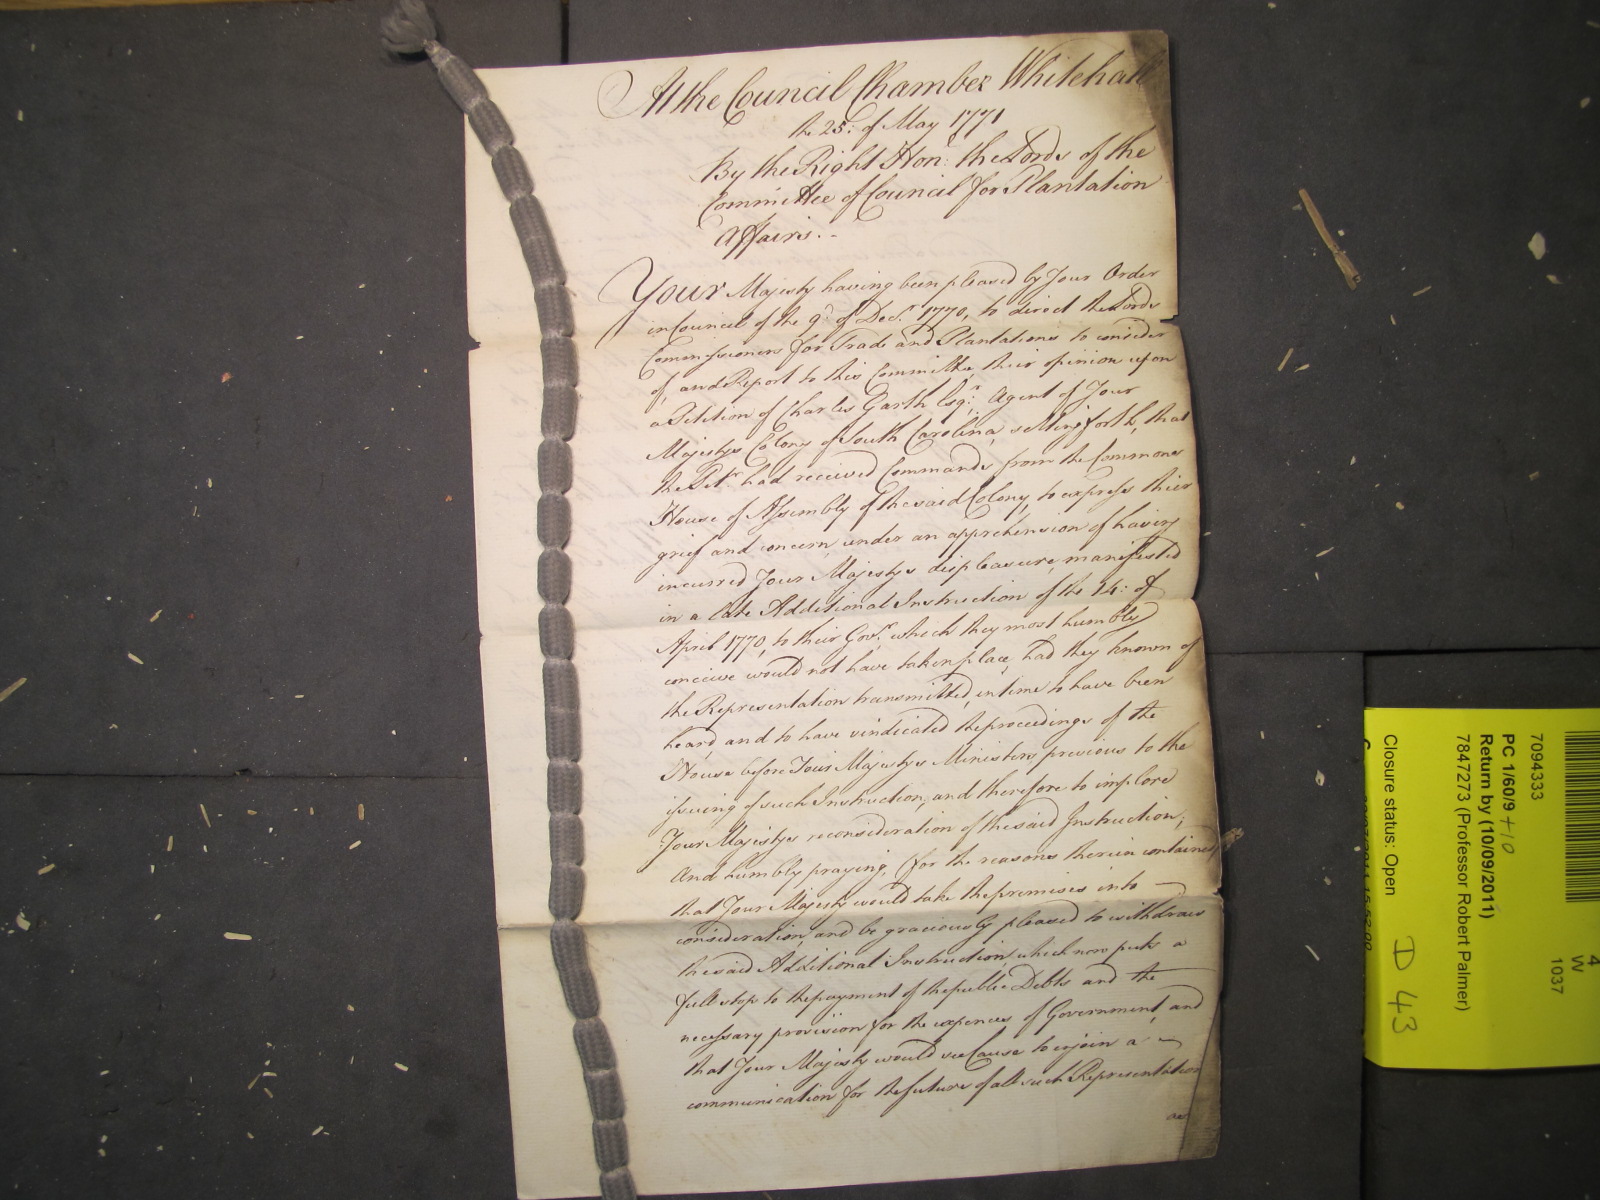 At the Council Chamber Whitehall
the 25.th of May 1771
By the Right Hon: the Lords of the
Committee of Council for Plantation
Affairs. -
Your Majesty having been pleased by Your Order
in Council of the 9.th of Dec.r 1770, to direct the Lords
Commissioners for Trade and Plantations to consider
of, and Report to this Committee, their opinion upon
a Petition of Charles Garth Esq.r Agent of Your
Majestys Colony of South Carolina, setting forth, that
the Pet.r had received Commands from the Commons
House of Assembly of the said Colony, to express their
grief and concern under an apprehension of having
incurred Your Majestys displeasure, manifested
in a late Additional Instruction of the 14: of
April 1770, to their Gov.r which they most humbly
conceive would not have taken place, had they known of
the Representation transmitted, in time to have been
heard and to have vindicated the proceedings of the
House before Your Majestys Ministers, previous to the
issuing of such Instruction, and therefore to implore
Your Majestys reconsideration of the said Instruction;
And humbly praying, (for the reasons therein contained)
that Your Majesty would take the premises into
consideration, and be graciously pleased to withdraw
the said Additional Instruction, which now puts a
full stop to the payment of the public Debts and the
necessary provision for the expences of Government, and
that Your Majesty would see Cause to enjoin a
communication for the future of all such Representations
4
W
1037
7094333
PC 1/60/9 +10
Return by (10/09/2011)
7847273 (Professor Robert Palmer)
Closure status: Open
D 43